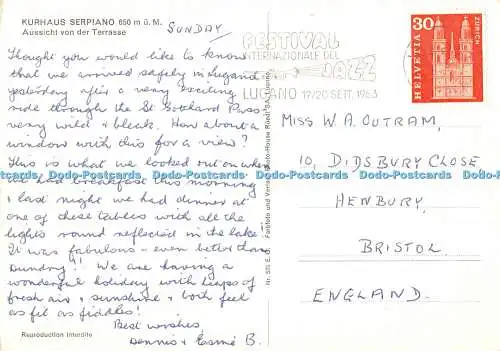 KURHAUS SERPIANO 650 m ü. M.
Aussicht von der Terrasse
SUNDAY
Thought you would like to know
that we arrived safely in Lugano
yesterday after a very exciting
ride through the St Gotthard Pass -
very wild & bleak. How about a
window with this for a view?
This is what we looked out on when
we had breakfast this morning
& last night we had dinner at
one of these tables with all the
lights round reflected in the lake.
It was fabulous - even better than
Dundry!! We are having a
wonderful holiday with heaps of
fresh air & sunshine & both feel
as fit as fiddles!
Best wishes,
Dennis & Esmé B.
Reproduction interdite
FESTIVAL
INTERNAZIONALE DEL
JAZZ
LUGANO 19/20 SETT. 1963
30
HELVETIA
ZÜRICH
MISS W A. OUTRAM,
10, DIDSBURY CLOSE
HENBURY,
BRISTOL
ENGLAND.
Dodo-Postcards Dodo-Postcards Dodo-Postcards Dodo-Postcards Dodo-Postcards